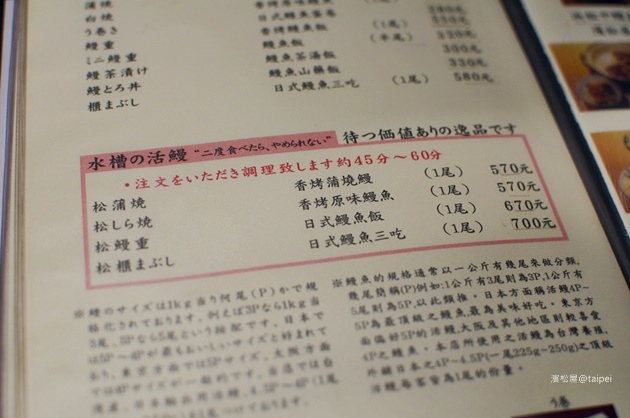 白焼 日式鰻魚蛋卷
う巻き 香烤鰻魚飯 (1尾)
鰻重 鰻魚飯 (半尾) 320元
ミニ鰻重 鰻魚茶湯飯 300元
鰻茶漬け 鰻魚山藥飯 330元
鰻とろ丼 日式鰻魚三吃 (1尾) 580元
櫃まぶし
水槽の活鰻 "二度食べたら、やめられない" 待つ価値ありの逸品です
・注文をいただき調理致します約45分～60分
松蒲焼 香烤蒲燒鰻 (1尾) 570元
松しら焼 香烤原味鰻魚 (1尾) 570元
松鰻重 日式鰻魚飯 (1尾) 670元
松櫃まぶし 日式鰻魚三吃 (1尾) 700元
※鰻のサイズは1kg当り何尾(P)かで規
格化されております。例えば3Pなら1kg当
3尾、5Pなら5尾という按配です。日本で
は5P～4Pが最もおいしいサイズと好まれて
おり、東京方面では5Pサイズ、大阪方面
では4Pサイズが一般的です。当店では台
※鰻魚的規格通常以一公斤有幾尾來做分類,
幾尾簡稱(P)例如:1公斤有3尾則為3P,1公斤有
5尾則為5P,以此類推。日本方面稱活鰻4P~
5P為最頂級之鰻魚,最為美味好吃。東京方
面偏好5P的活鰻,大阪及其他地區則較喜愛
4P之鰻魚。本店所使用之活鰻為台灣養殖,
外銷日本之4P~4.5P(一尾225g~250g)之頂級
活鰻每客皆為1尾的份量。
濱松屋@taipei